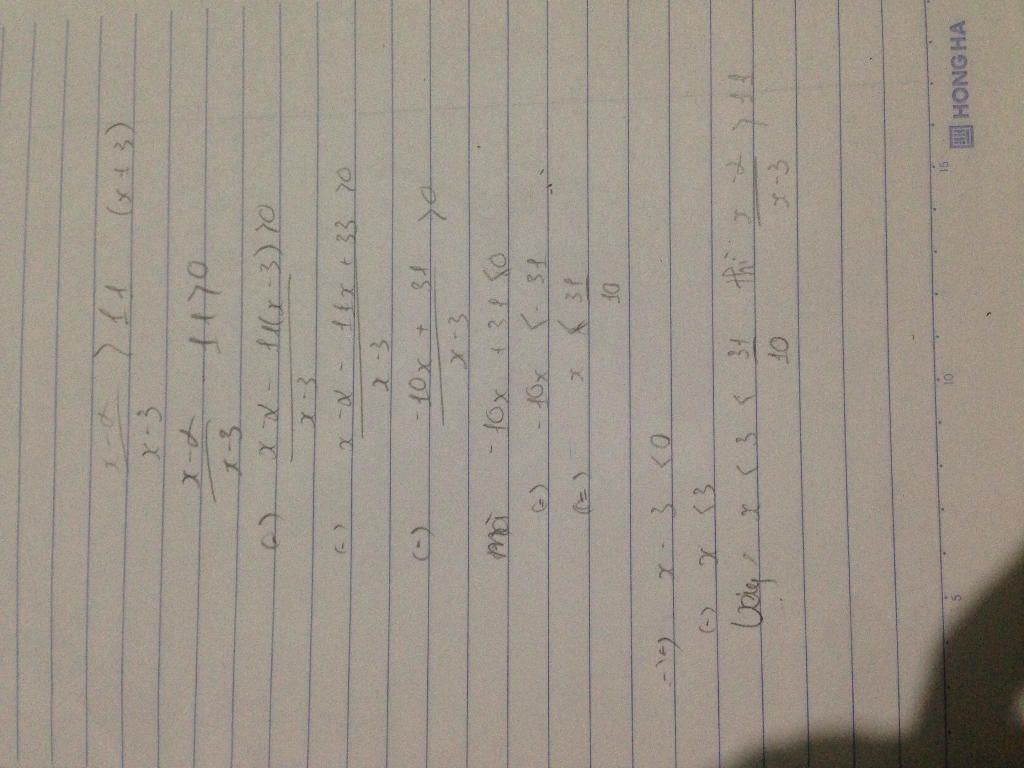 x-2/x-3 > 11 (x ± 3)
x-2/x-3 - 11 > 0
(=) x-2 - 11(x-3)/x-3 > 0
(=) x-2 - 11x + 33/x-3 > 0
(=) -10x + 31/x-3 > 0
mà -10x + 31 < 0
(=) -10x < - 31
(=) x < 31/10
=) x - 3 < 0
(=) x < 3
Vậy x < 3 < 31/10 thì x-2/x-3 > 11
5 10 15
HONG HA